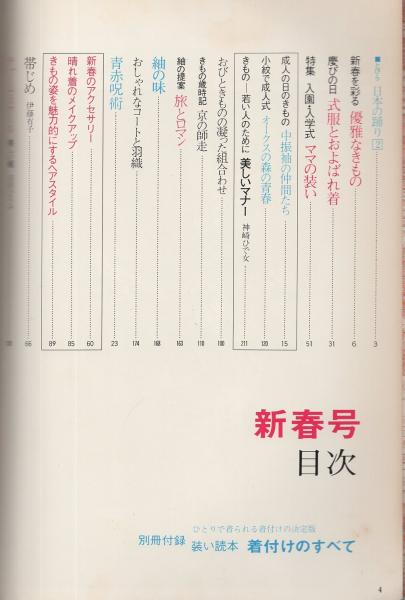 ■とびら 日本の踊り② 3
新春を彩る 優雅なきもの 6
慶びの日 式服とおよばれ着 31
特集 入園・入学式 ママの装い 51
成人の日のきもの 中振袖の仲間たち 15
小紋で成人式 オークスの森の青春 120
きもの──若い人のために 美しいマナー 神崎ひで女 211
おびときものの凝った組合わせ 100
きもの歳時記 京の師走 110
紬の提案 旅とロマン 163
紬の味 168
おしゃれなコートと羽織 174
青赤呪術 23
新春のアクセサリー 60
晴れ着のメイクアップ 85
きもの姿を魅力的にするヘアスタイル 89
帯じめ 伊藤有子 66
新春号
目次
ひとりで着られる着付けの決定版
別冊付録 装い読本 着付けのすべて
4